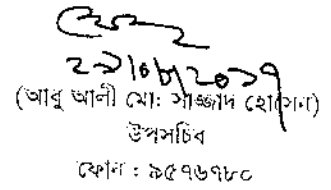 ২৯/০৮/২০১৭
(আবু আলী মো: সাজ্জাদ হোসেন)
উপসচিব
ফোন : ৯৫৭৬৭৮০